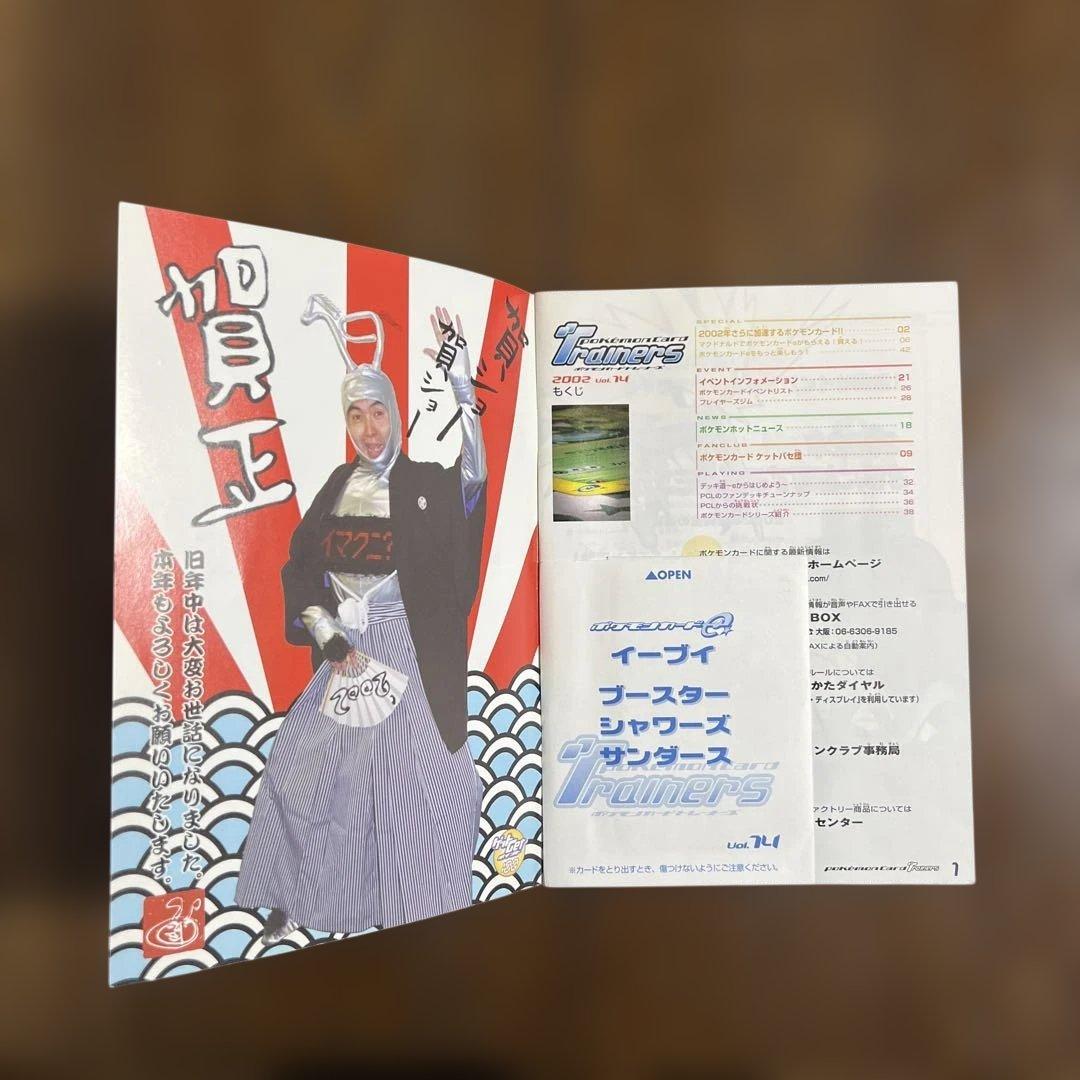 賀正
賀ショー
賀ショー
イマクニ?
2002
旧年中は大変お世話になりました。
本年もよろしくお願いいたします。
pokémon card
Trainers
ポケモンカードトレーナーズ
2002 Vol.14
もくじ
SPECIAL
2002年さらに加速するポケモンカード!! 02
マクドナルドでポケモンカードeがもらえる!買える! 06
ポケモンカードeをもっと楽しもう! 42
EVENT
イベントインフォメーション 21
ポケモンカードイベントリスト 26
プレイヤーズジム 28
NEWS
ポケモンホットニュース 18
FANCLUB
ポケモンカード ケットバセ団 09
PLAYING
デッキ道~eからはじめよう~ 32
PCLのファンデッキチューンナップ 34
PCLからの挑戦状 36
ポケモンカードシリーズ紹介 38
ポケモンカードに関する最新情報は
ホームページ
.com/
情報が音声やFAXで引き出せる
BOX
☎大阪:06-6306-9185
AXによる自動案内)
ルールについては
かたダイヤル
・ディスプレイ」を利用しています)
ンクラブ事務局
ァクトリー商品については
センター
▲OPEN
ポケモンカードe
イーブイ
ブースター
シャワーズ
サンダース
pokémon card
Trainers
ポケモンカードトレーナーズ
Vol.14
※カードをとり出すとき、傷つけないようにご注意ください。
pokémon card Trainers 1